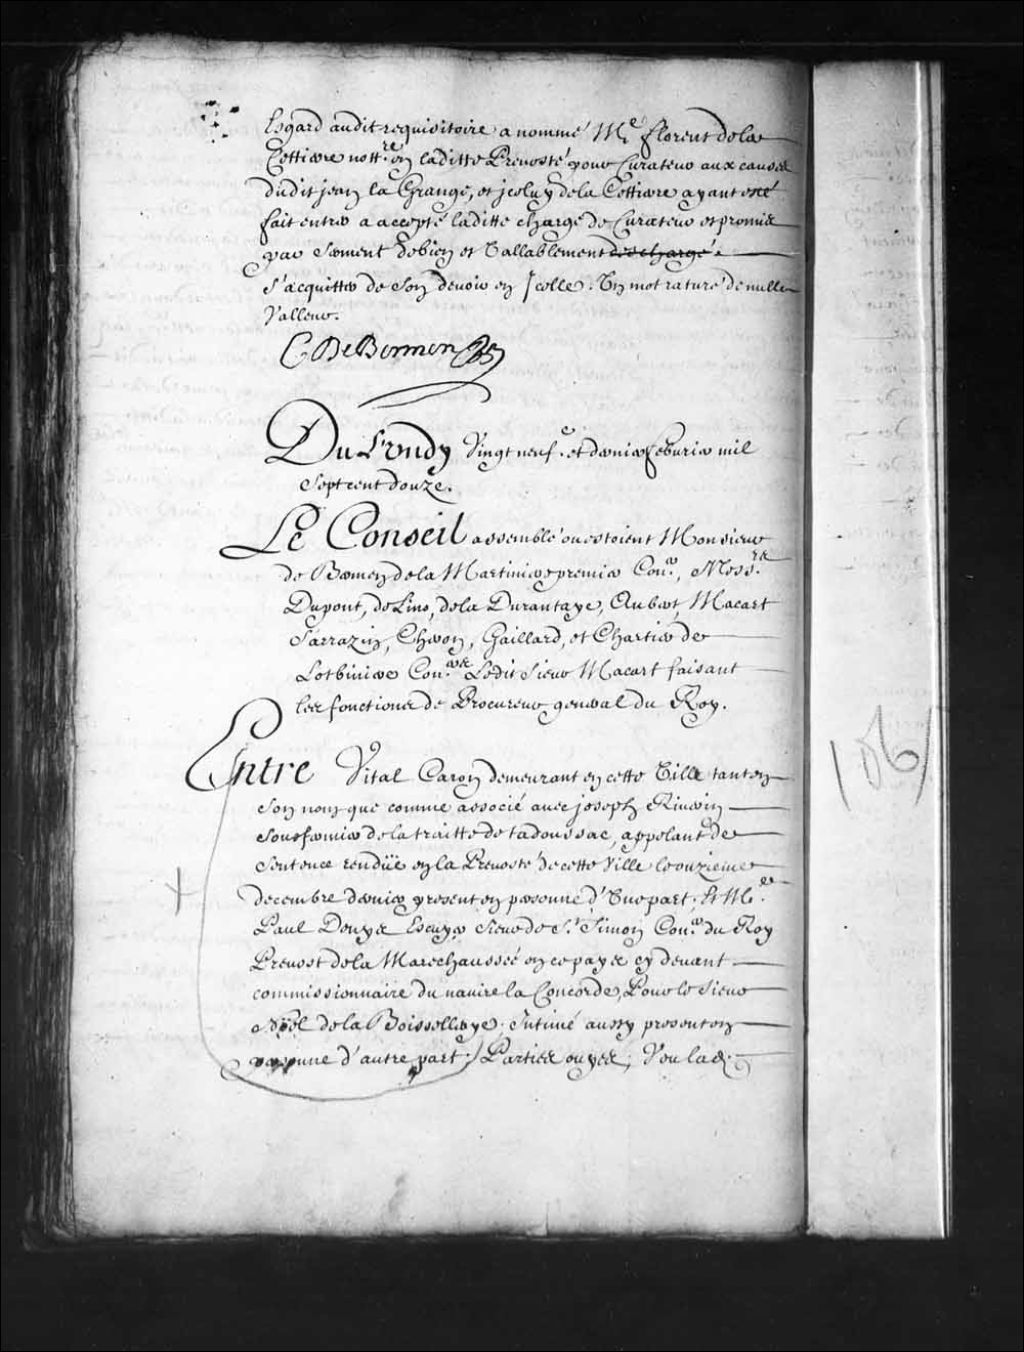 Esgard audit requisitoire a nommé Me florent dela
Cettiere nottre en laditte Prevosté pour Curateur aux causes
dudit jean la Grange, et jceluy dela Cettiere ayant esté
fait entrer a accepté laditte charge de Curateur et promis
par serment de bien et vallablement descharge
s'acquitter de son devoir en jcelle. Un mot raturé de nulle
valleur.
C. De Bermen
Du Lundy vingt neufe. et dernier feburier mil
Sept cent douze.
Le Conseil assemblé ou estoient Monsieur
de Bermen dela Martiniere premier Coner, Messrs
Dupont, de Lino, dela Durantaye, Aubert, Macart
Sarrazin, Cheron, Gaillard, et Chartier de
Lotbiniere Coners Ledit Sieur Macart faisant
les fonctions de Procureur general du Roy.
Entre Vital Caron demeurant en cette Ville tant en
Son nom que comme associé avec joseph Riverin
Sousfermier de la traitte de tadoussac, appelant de
Sentence rendüe en la Prevosté de cette Ville le onzieme
decembre dernier present en personne d'Une part. Et Me
Paul Denys Escuyer Sieur de St Simon Coner du Roy
Prevost dela Marechaussée en ce pays cy devant
commissionnaire du navire la Concorde, Pour le Sieur
Noël de la Boissellerye; Intimé aussy present en
personne d'autre part; Parties ouyes; Veu lad.
106